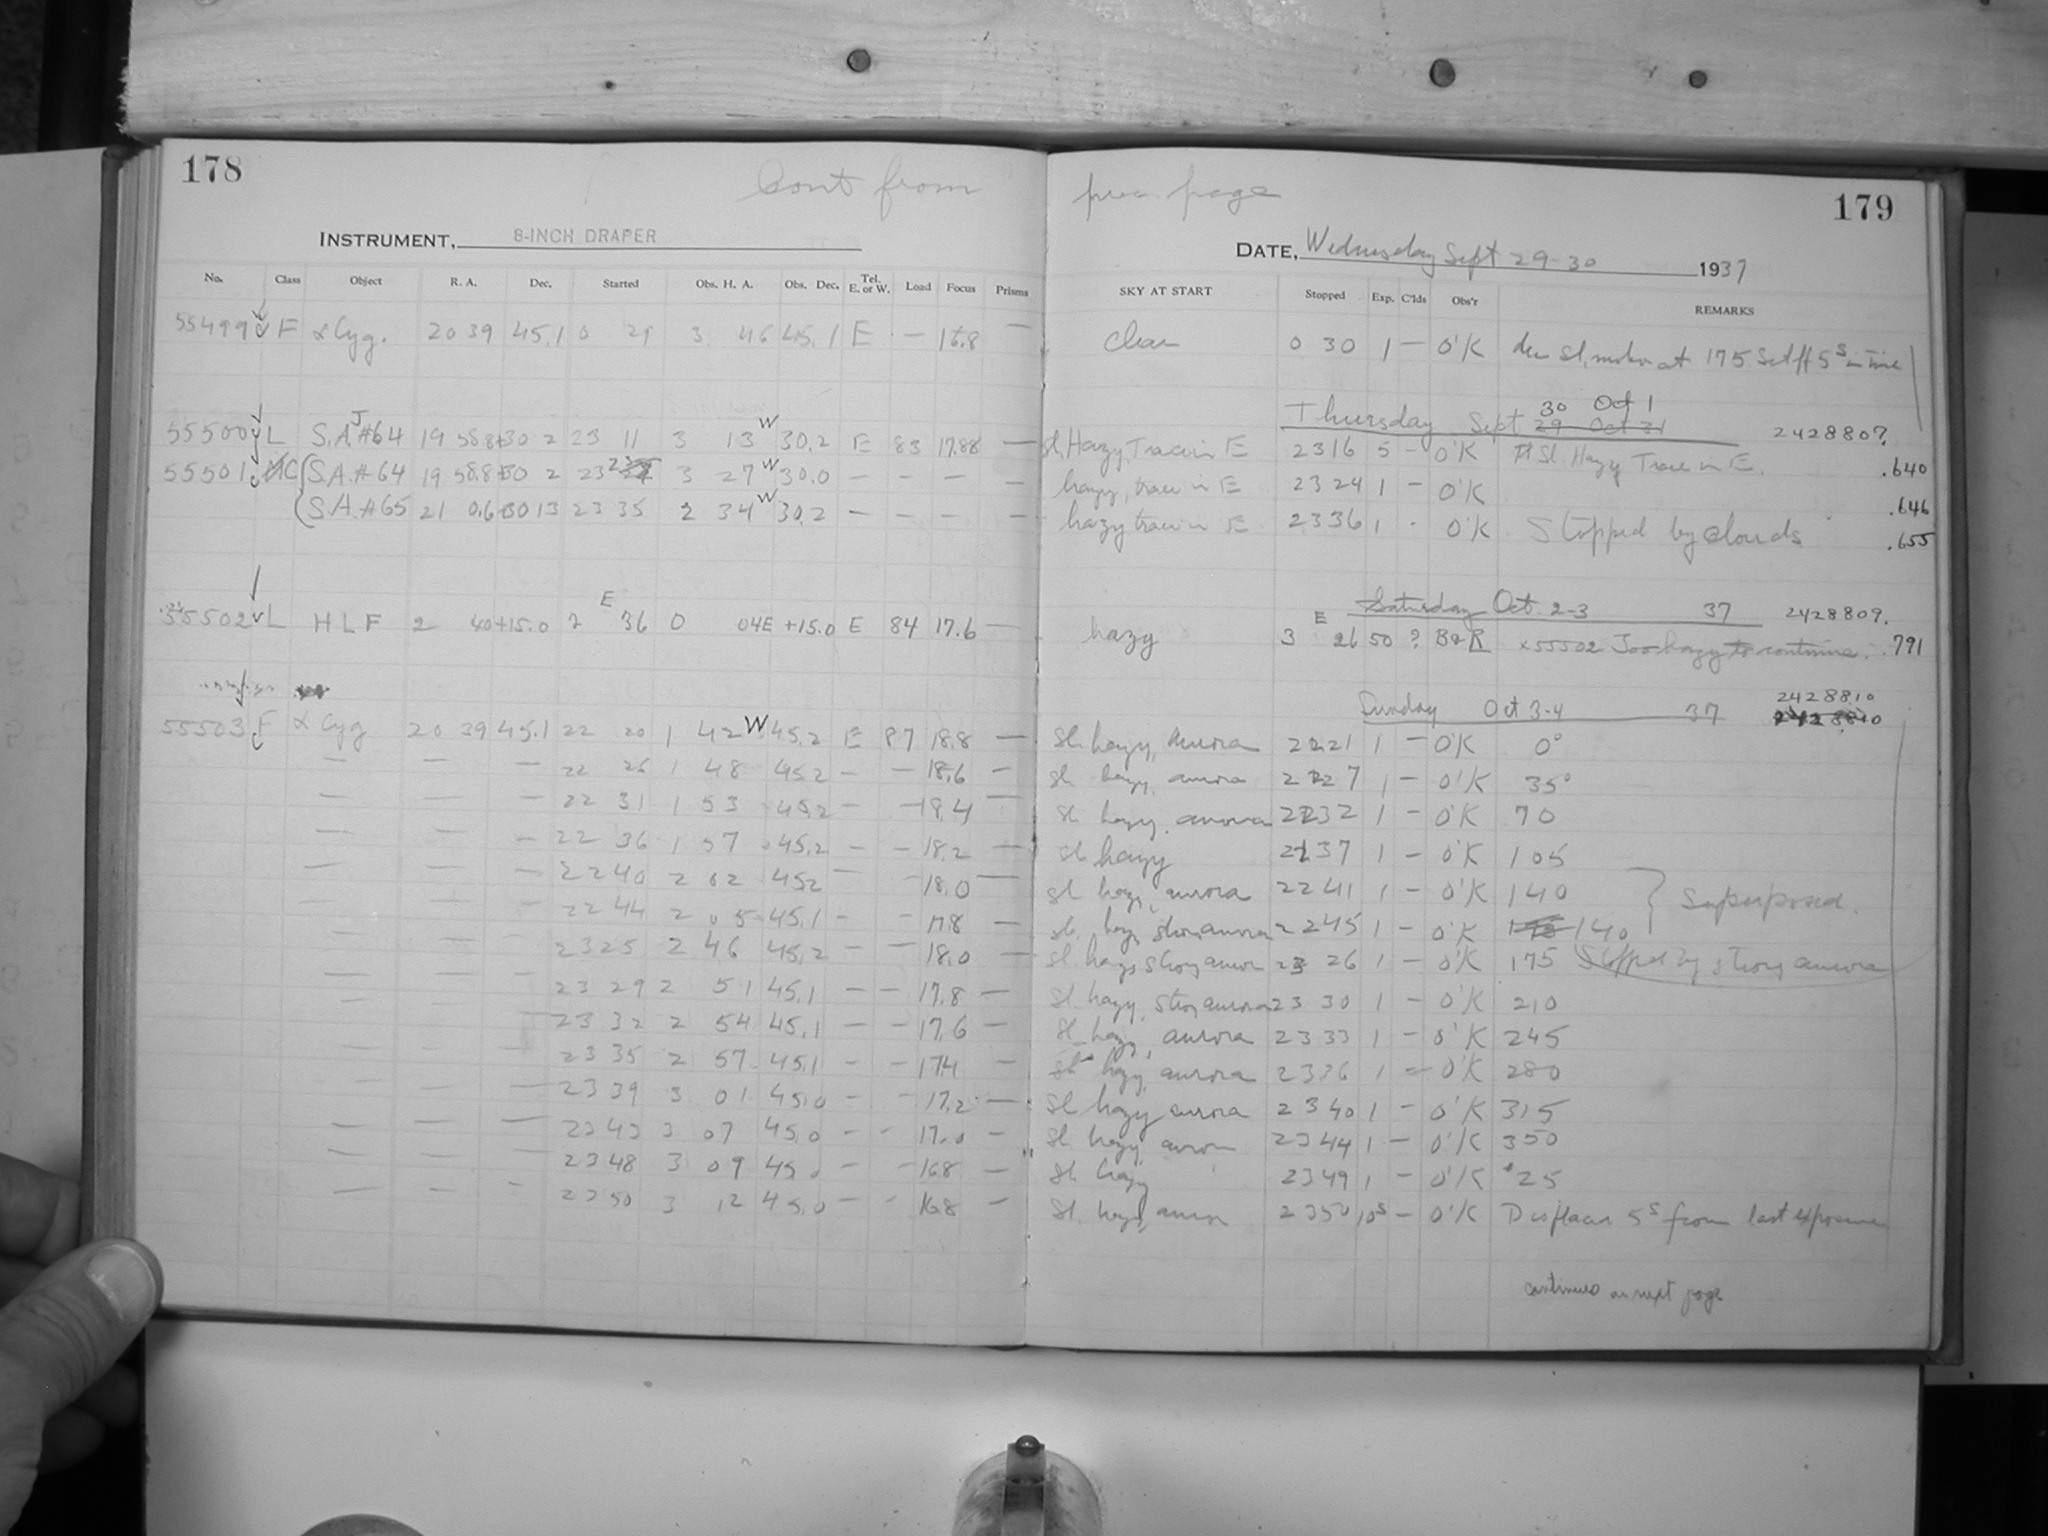 178
Cont from prec. page
179
INSTRUMENT, 8-INCH DRAPER
DATE, Wednesday Sept 29-30 1937
No. Class Object R. A. Dec. Started Obs. H. A. Obs. Dec. Tel. E. or W. Load Focus Prisms SKY AT START Stopped Exp. C'lds Obs'r REMARKS
55499 F α Cyg. 20 39 45.1 0 29 3 46 45.1 E — 16.8 — Clear 0 30 1 — O'K 175 5s in
Thursday Sept 30 Oct 1 2428807.
55500 L S.A.#64 19 58.8 +30 2 23 11 3 13 W 30.2 E 83 17.88 — sl. Hazy, Trace in E 2316 5 - O'K Sl. Hazy Trace in E. .640
55501 C S.A.#64 19 58.8 +30 2 23 3 27 W 30.0 — — — — hazy, trace in E 2324 1 — O'K .646
S.A.#65 21 0.6 +30 13 23 35 2 34 W 30.2 — — — — hazy trace in E 2336 1 - O'K Stopped by clouds .655
Saturday Oct. 2-3 37 2428809.
55502 L H L F 2 40 +15.0 2 E 36 0 04E +15.0 E 84 17.6 — hazy 3 E 26 50 ? B&R x55502 Too hazy to continue. .791
Sunday Oct 3-4 37 2428810
55503 F α Cyg 20 39 45.1 22 20 1 42 W 45.2 E 87 18.8 — sl. hazy, aurora 2221 1 — O'K 0°
— — — 22 26 1 48 45.2 — — 18.6 — sl hazy, aurora 2227 1 — O'K 35°
— — — 22 31 1 53 45.2 — — 18.4 — sl hazy, aurora 2232 1 — O'K 70
— — — 22 36 1 57 45.2 — — 18.2 — sl hazy 2237 1 — O'K 105
— — — 2240 2 02 45.2 — 18.0 — sl hazy, aurora 2241 1 — O'K 140
Superposed.
— — — 2244 2 05 45.1 — — 17.8 — sl. hazy strong aurora 2245 1 — O'K 140
— — — 2325 2 46 45.2 — — 18.0 — sl hazy strong aurora 23 26 1 — O'K 175 Stopped by strong aurora
— — — 23 29 2 51 45.1 — — 17.8 — sl hazy, strong aurora 23 30 1 — O'K 210
— — — 23 32 2 54 45.1 — — 17.6 — sl hazy, aurora 2333 1 — O'K 245
— — — 23 35 2 57 45.1 — — 17.4 — sl hazy, aurora 2336 1 — O'K 280
— — — 2339 3 01 45.0 — — 17.2 — sl hazy aurora 2340 1 — O'K 315
— — — 2343 3 07 45.0 — — 17.0 — sl hazy, aurora 2344 1 — O'K 350
— — — 2348 3 09 45.0 — — 16.8 — sl hazy 2349 1 — O'K 25
— — — 2350 3 12 45.0 — — 16.8 — Sl. hazy, aurora 2350 10s — O'K Displace 5s from last exposure
continued on next page